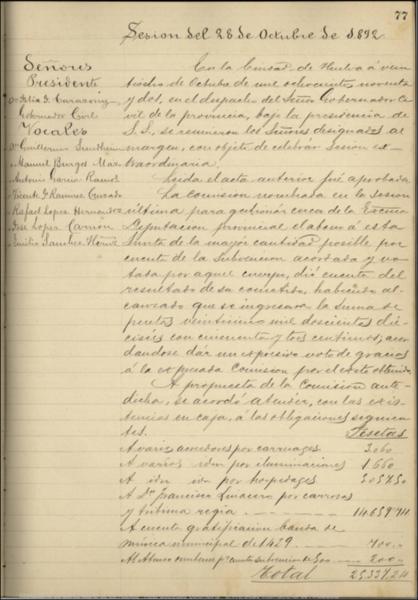 77
Sesion del 28 de Octubre de 1892
Señores
Presidente
Gobernador Civil
Vocales
Manuel Burgos Maz
Antonio Garcia Ramos
Vicente G Ramirez Cruzado
Rafael Lopez Hernandez
José Lopez Carrion
Emilio Sanchez
En la Ciudad de Huelva á vein
tiocho de Octubre de mil ochocientos noventa
y dos, en el despacho del Señor Gobernador Ci
vil de la provincia, bajo la presidencia de
S. S., se reunieron los Señores designados al
margen, con objeto de celebrar Sesion ex
traordinaria.
Leida el acta anterior fué aprobada
La Comision nombrada en la sesion
última para gestionar cerca de la Excma
Diputacion provincial el abono á esta
Junta de la mayor cantidad posible por
cuenta de la Subvencion acordada y vo
tada por aquel cuerpo, dió cuenta del
resultado de su cometido, habiendo al
canzado que se ingresara la suma de
pesetas veintiun mil doscientos die
ciseis con cincuenta y tres centimos; acor
dandose dar un expresivo voto de gracias
á la expresada Comision por el exito obtenido
A propuesta de la Comision ante
dicha, se acordó atender, con las exis
tencias en caja, á las obligaciones siguien
tes.
Pesetas
A varios acreedores por carruages 3.060
A varios idm por iluminaciones 1.660
A idm idm por hospedages
A Dn Francisco por carrosas
y tribuna regia
A cuenta gratificacion banda de
música municipal de 1429 700
por cuenta subvencion de 500 200
Total